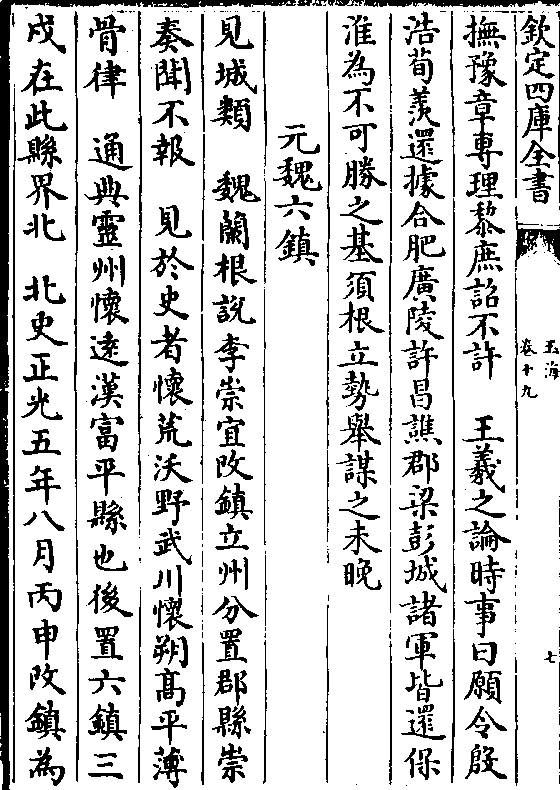 欽定四庫全書
玉海
卷十九
七
撫豫章專理黎庶詔不許　王羲之論時事曰願令殷
浩荀羨還據合肥廣陵許昌譙郡梁彭城諸軍皆還保
淮為不可勝之基須根立勢舉謀之未晚
元魏六鎮
見城類　魏蘭根説李崇宜改鎮立州分置郡縣崇
奏聞不報　見於史者懷荒沃野武川懷朔髙平薄
骨律　通典靈州懷逺漢富平縣也後置六鎮三
戍在此縣界北　北史正光五年八月丙申改鎮為